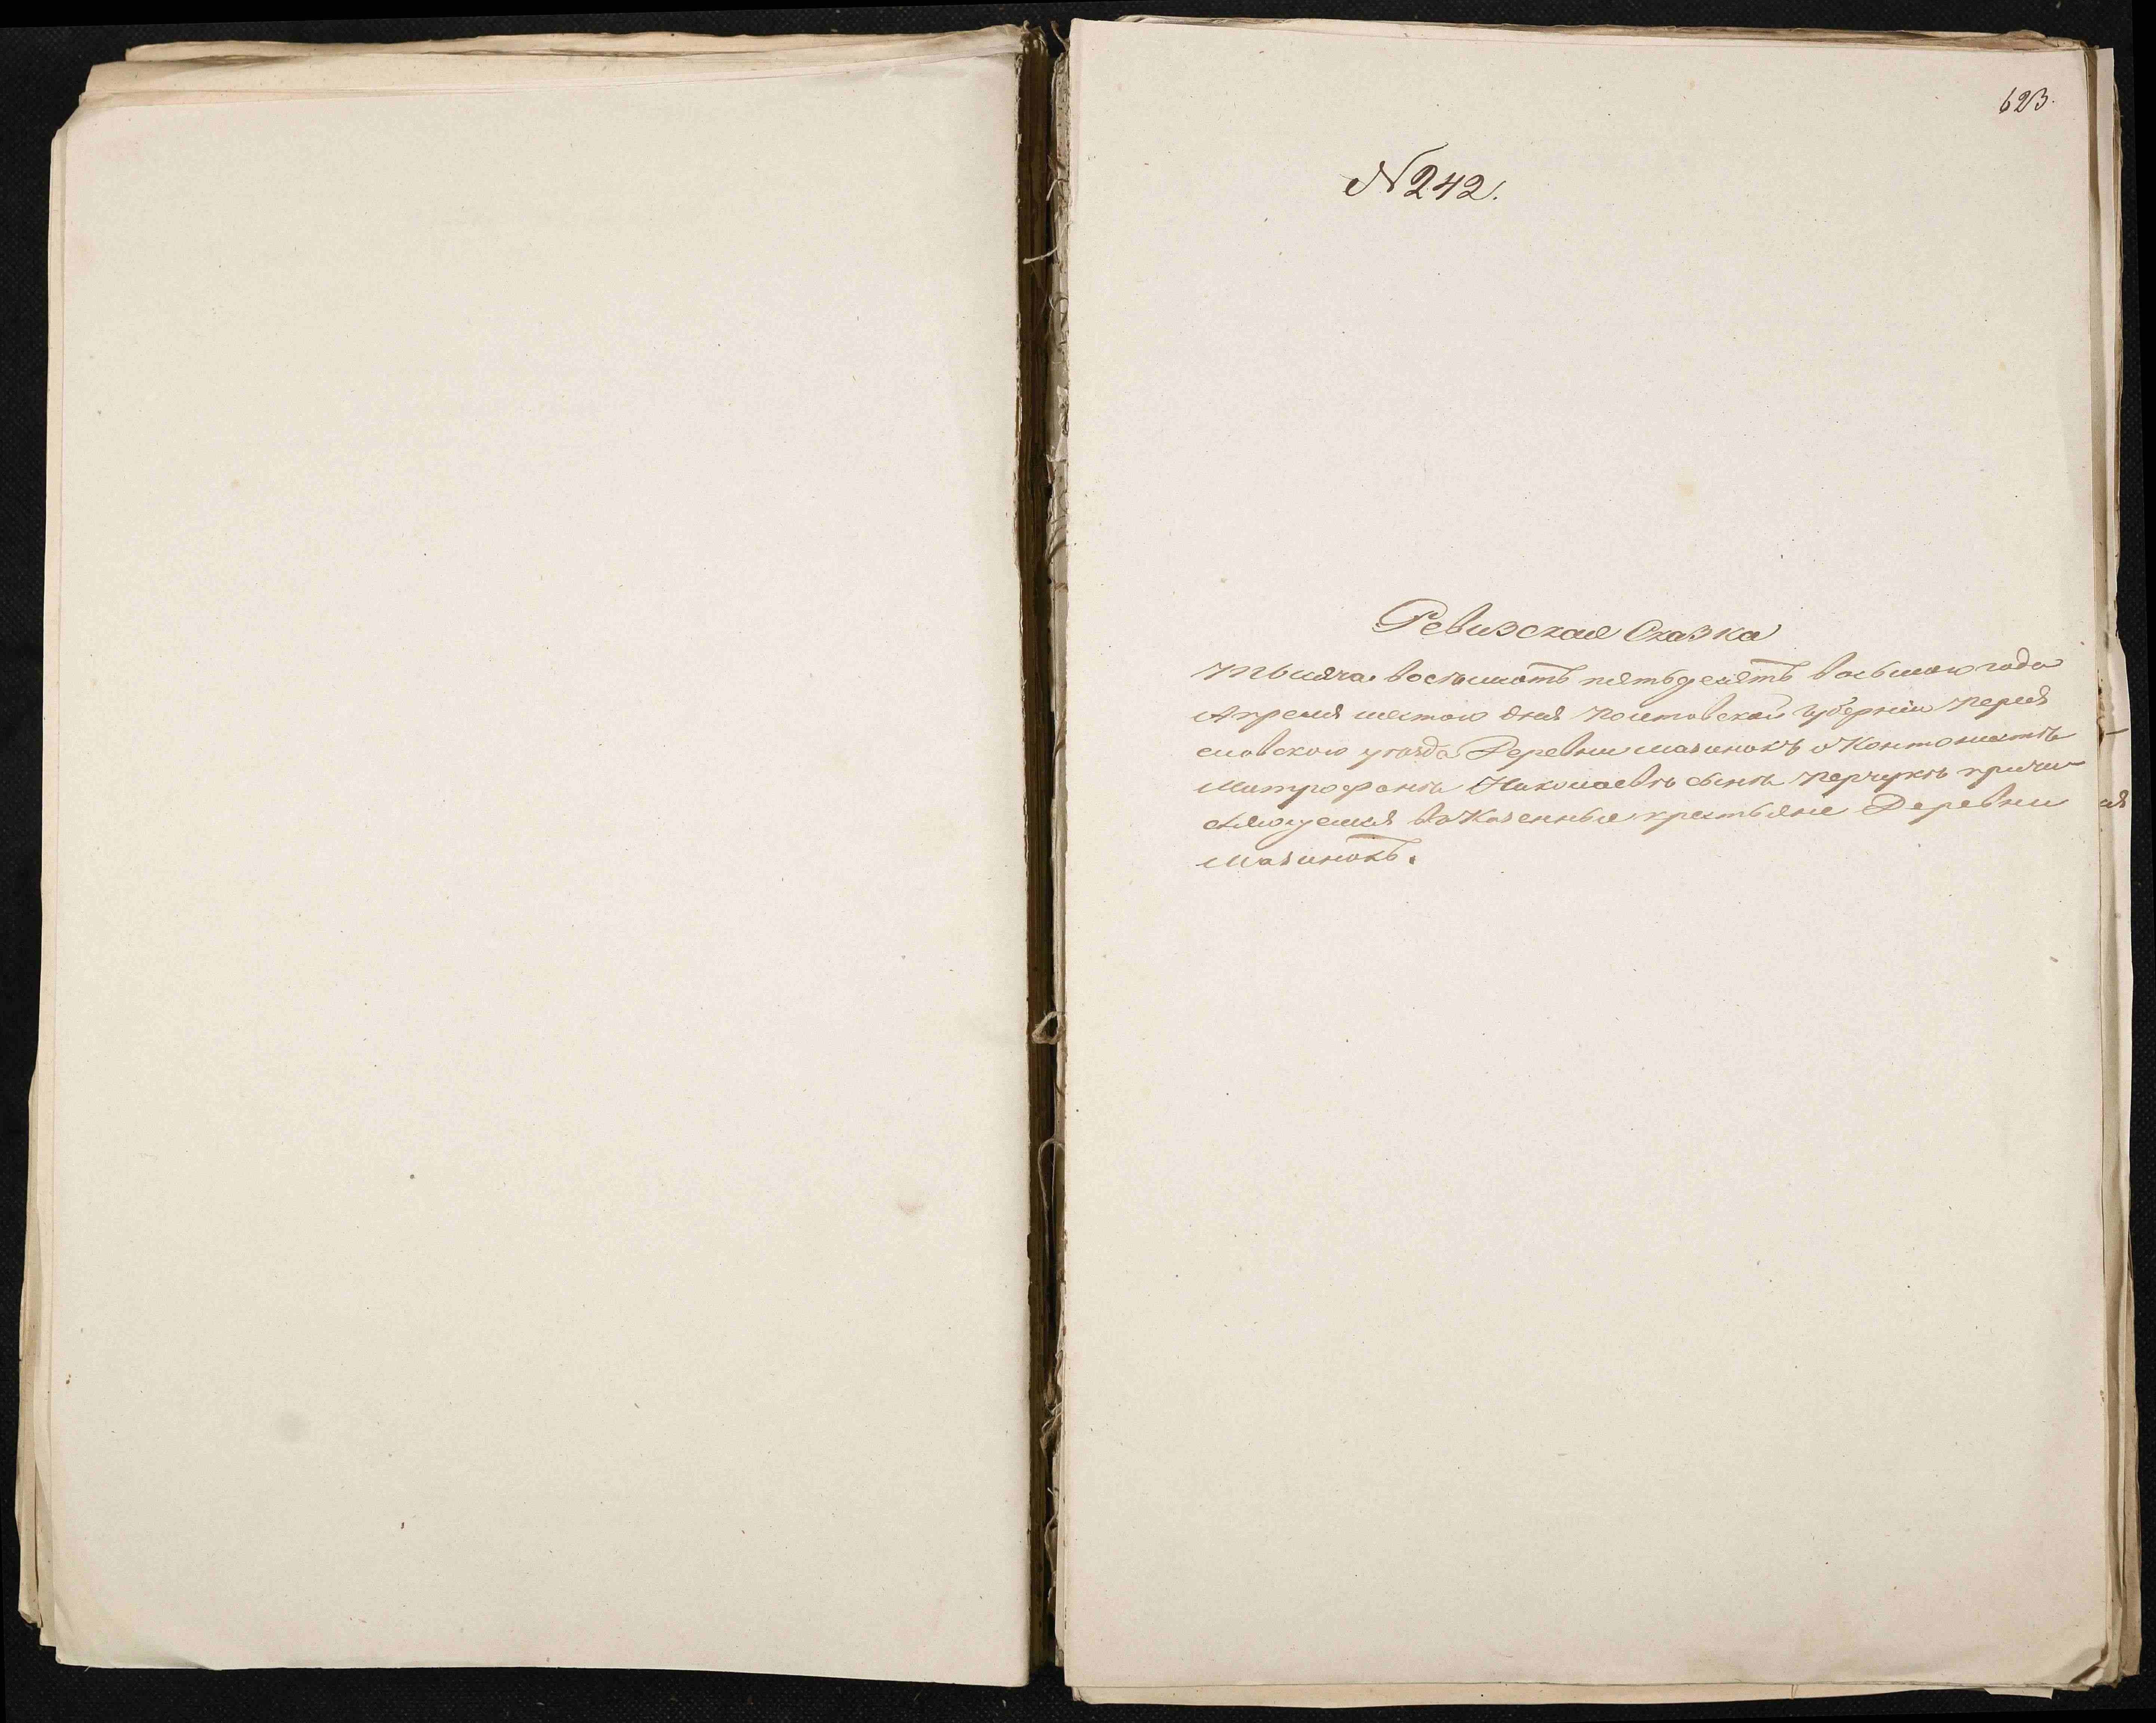 623.
N 242.
Ревизская Сказка
Тысяча восѣмсотъ пятьдесятъ восьмаго года
Апреля шестаго дня Полтавской губерніи Перея
славскаго уѣзда Деревни Мазинокъ о Контонистѣ
Митрофанѣ Николаевѣ сынѣ причи
сляющемся въ Казенные крестьяне Деревни
Мазинокъ.